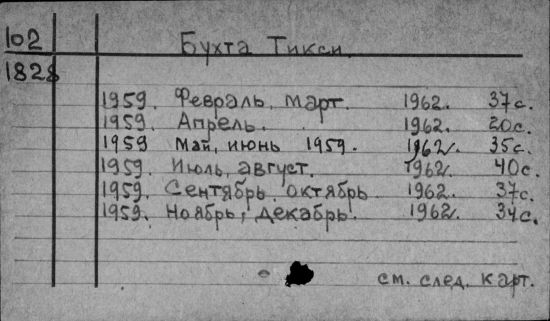 102 Бухта Тикси.
1828
1959. Февраль, март. 1962. 37с.
1959. Апрель. 1962. 20с.
1959 Май, июнь 1959. 1962. 35с.
1959. Июль, август. 1962. 40с.
1959. Сентябрь, октябрь 1962. 37с.
1959. Ноябрь, декабрь. 1962. 34с.
см. след. карт.